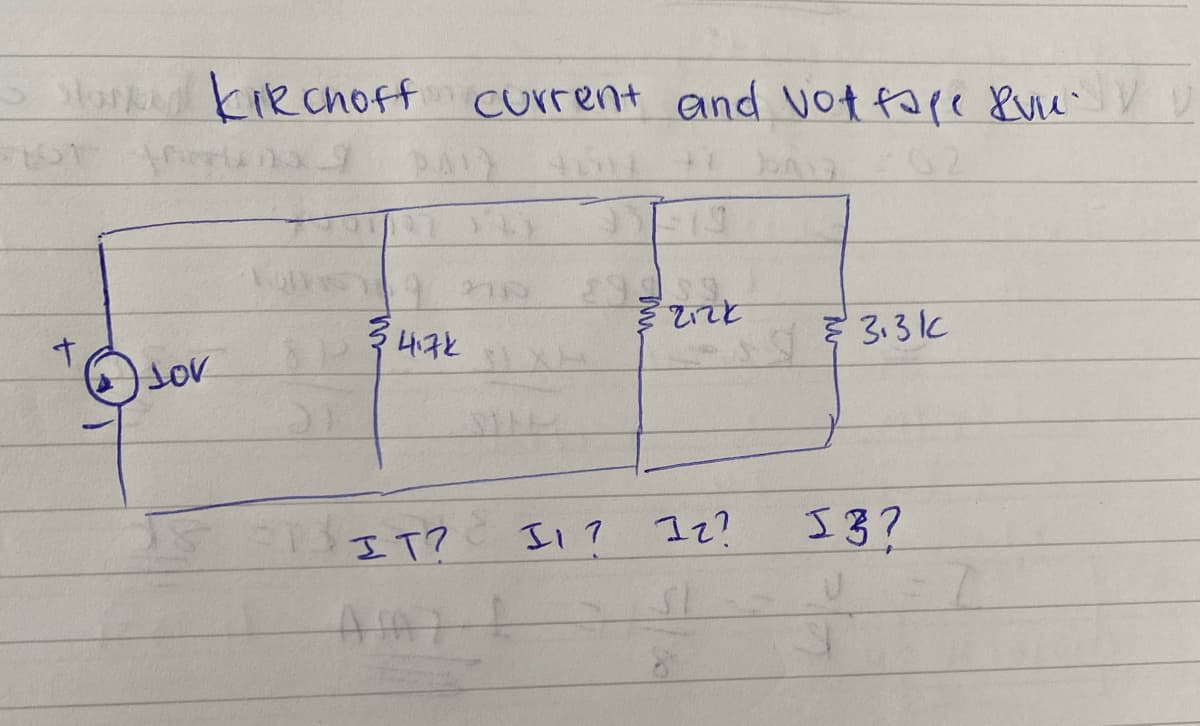 kirchoff current and voltage
+
10V
4.7k
2.2k
3.3k
IT? I1? I2? I3?